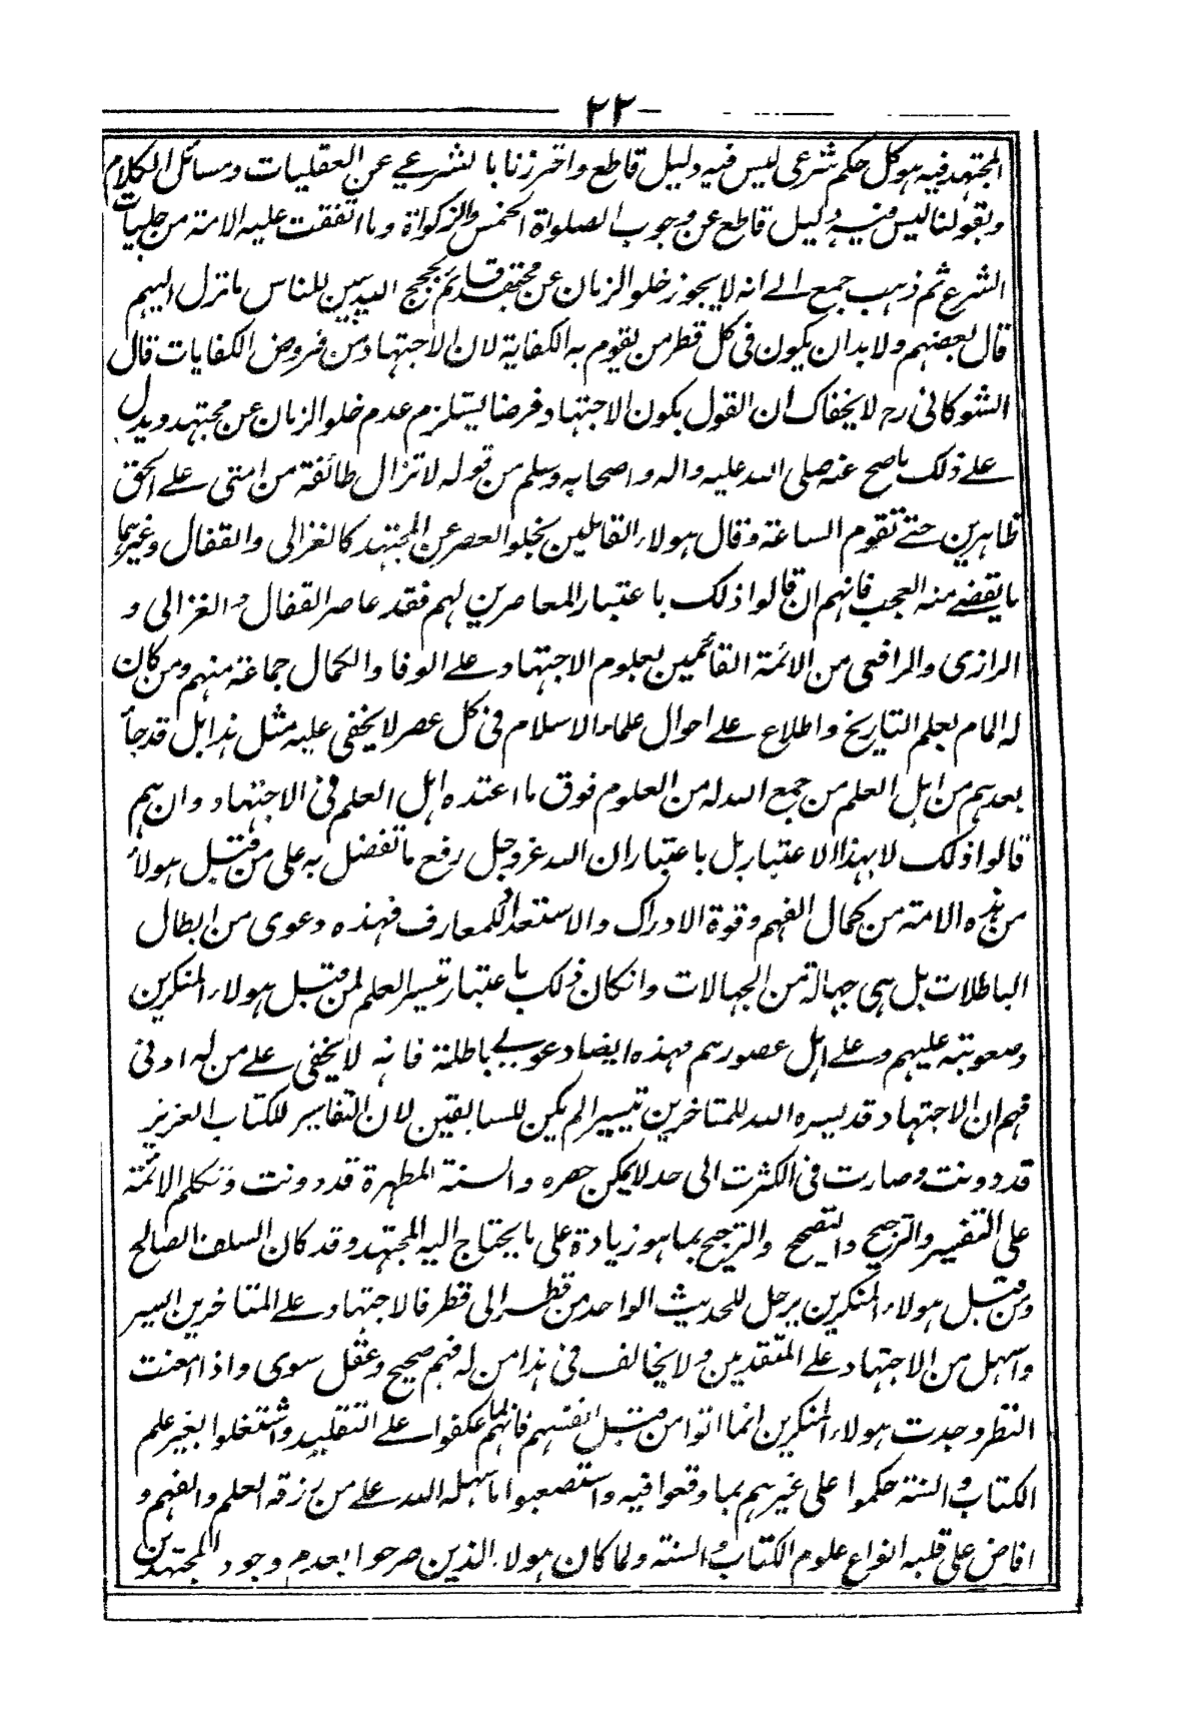 ٢٢
المجتهد فيه هو كل حكم شرعى ليس فيه دليل قاطع واحترزنا بالشرعي عن العقليات ومسائل الكلام
وبقولنا ليس فيه دليل قاطع عن وجوب الصلواة الخمس والزكواة وما اتفقت عليه الامة من جليات
الشرع ثم ذهب جمع الے انه لا يجوز خلو الزمان عن مجتهد قائم بحجج الله يبين للناس ما نزل اليهم
قال بعضهم ولا بد ان يكون فى كل قطر من يقوم به الكفاية لان الاجتهاد من فروض الكفايات قال
الشوكانى رح لا يخفاك ان القول بكون الاجتهاد فرضا يستلزم عدم خلو الزمان عن مجتهد ويدل
علے ذلك ما صح عنه صلى الله عليه واله واصحابه وسلم من قوله لا تزال طائفة من امتى علے الحق
ظاهرين حتے تقوم الساعة وقال هولاء القائلين بخلو العصر عن المجتهد كالغزالى والقفال وغيرهما
ما يقضے منه العجب فانهم ان قالوا ذلك باعتبار المعاصرين لهم فقد عاصر القفال والغزالى و
الرازى والرافعى من الائمة القائمين بعلوم الاجتهاد علے الوفا والكمال جماعة منهم ومن كان
له المام بعلم التاريخ واطلاع علے احوال علماء الاسلام فى كل عصر لا يخفى عليه مثل هذا بل قد جأ
بعدهم من اهل العلم من جمع الله له من العلوم فوق ما اعتده اهل العلم فى الاجتهاد وان هم
قالوا ذلك لا بهذا الاعتبار بل باعتبار ان الله عزوجل رفع ما تفضل به على من قبل هولأ
من هذه الامة من كمال الفهم وقوة الادراك والاستعداد للمعارف فهذه دعوى من ابطال
الباطلات بل هى جهالة من الجهالات وانكان ذلك باعتبار تيسر العلم لمن قبل هولاء المنكرين
وصعوبته عليهم وعلے اهل عصورهم فهذه ايضا دعوے باطلة فانه لا يخفى علے من له ادنى
فهم ان الاجتهاد قد يسره الله للمتاخرين تيسيرا لم يكن للسابقين لان التفاسير للكتاب العزيز
قد دونت وصارت فى الكثرت الى حد لا يمكن حصره والسنة المطهرة قد دونت وتكلم الائمة
على التفسير والترجيح والتصحيح والترجيح بما هو زيادة على ما يحتاج اليه المجتهد وقد كان السلف الصالح
ومن قبل هولاء المنكرين يرحل للحديث الواحد من قطر الى قطر فالاجتهاد علے المتاخرين ايسر
واسهل من الاجتهاد علے المتقدمين ولا يخالف فى هذا من له فهم صحيح وعقل سوى واذا امعنت
النظر وجدت هولاء المنكرين انما اتوا من قبل انفسهم فانهم لما عكفوا علے التقليد واشتغلوا بغير علم
الكتاب والسنة حكموا على غيرهم بما وقعوا فيه واستصعبوا ما سهله الله علے من رزقه العلم والفهم و
افاض على قلبه انواع علوم الكتاب والسنة ولما كان هولاء الذين صرحوا بعدم وجود المجتهدين